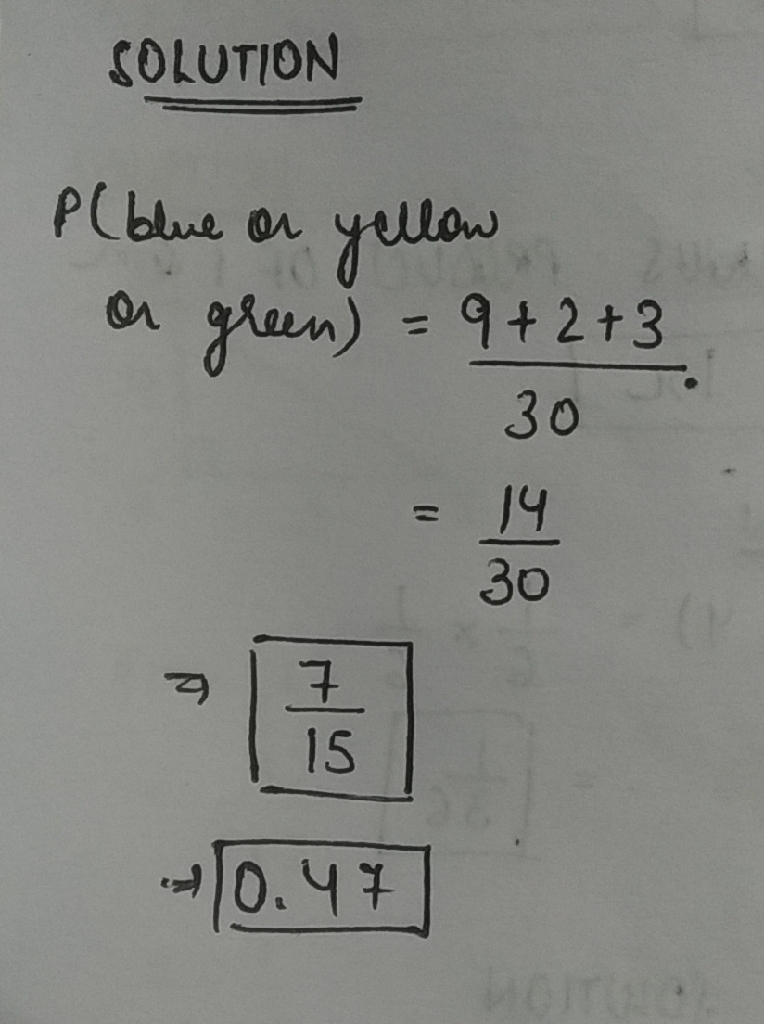 SOLUTION
P(blue or yellow
or green) = 9+2+3
30
= 14
30
⇒ 7
15
⇒ 0.47